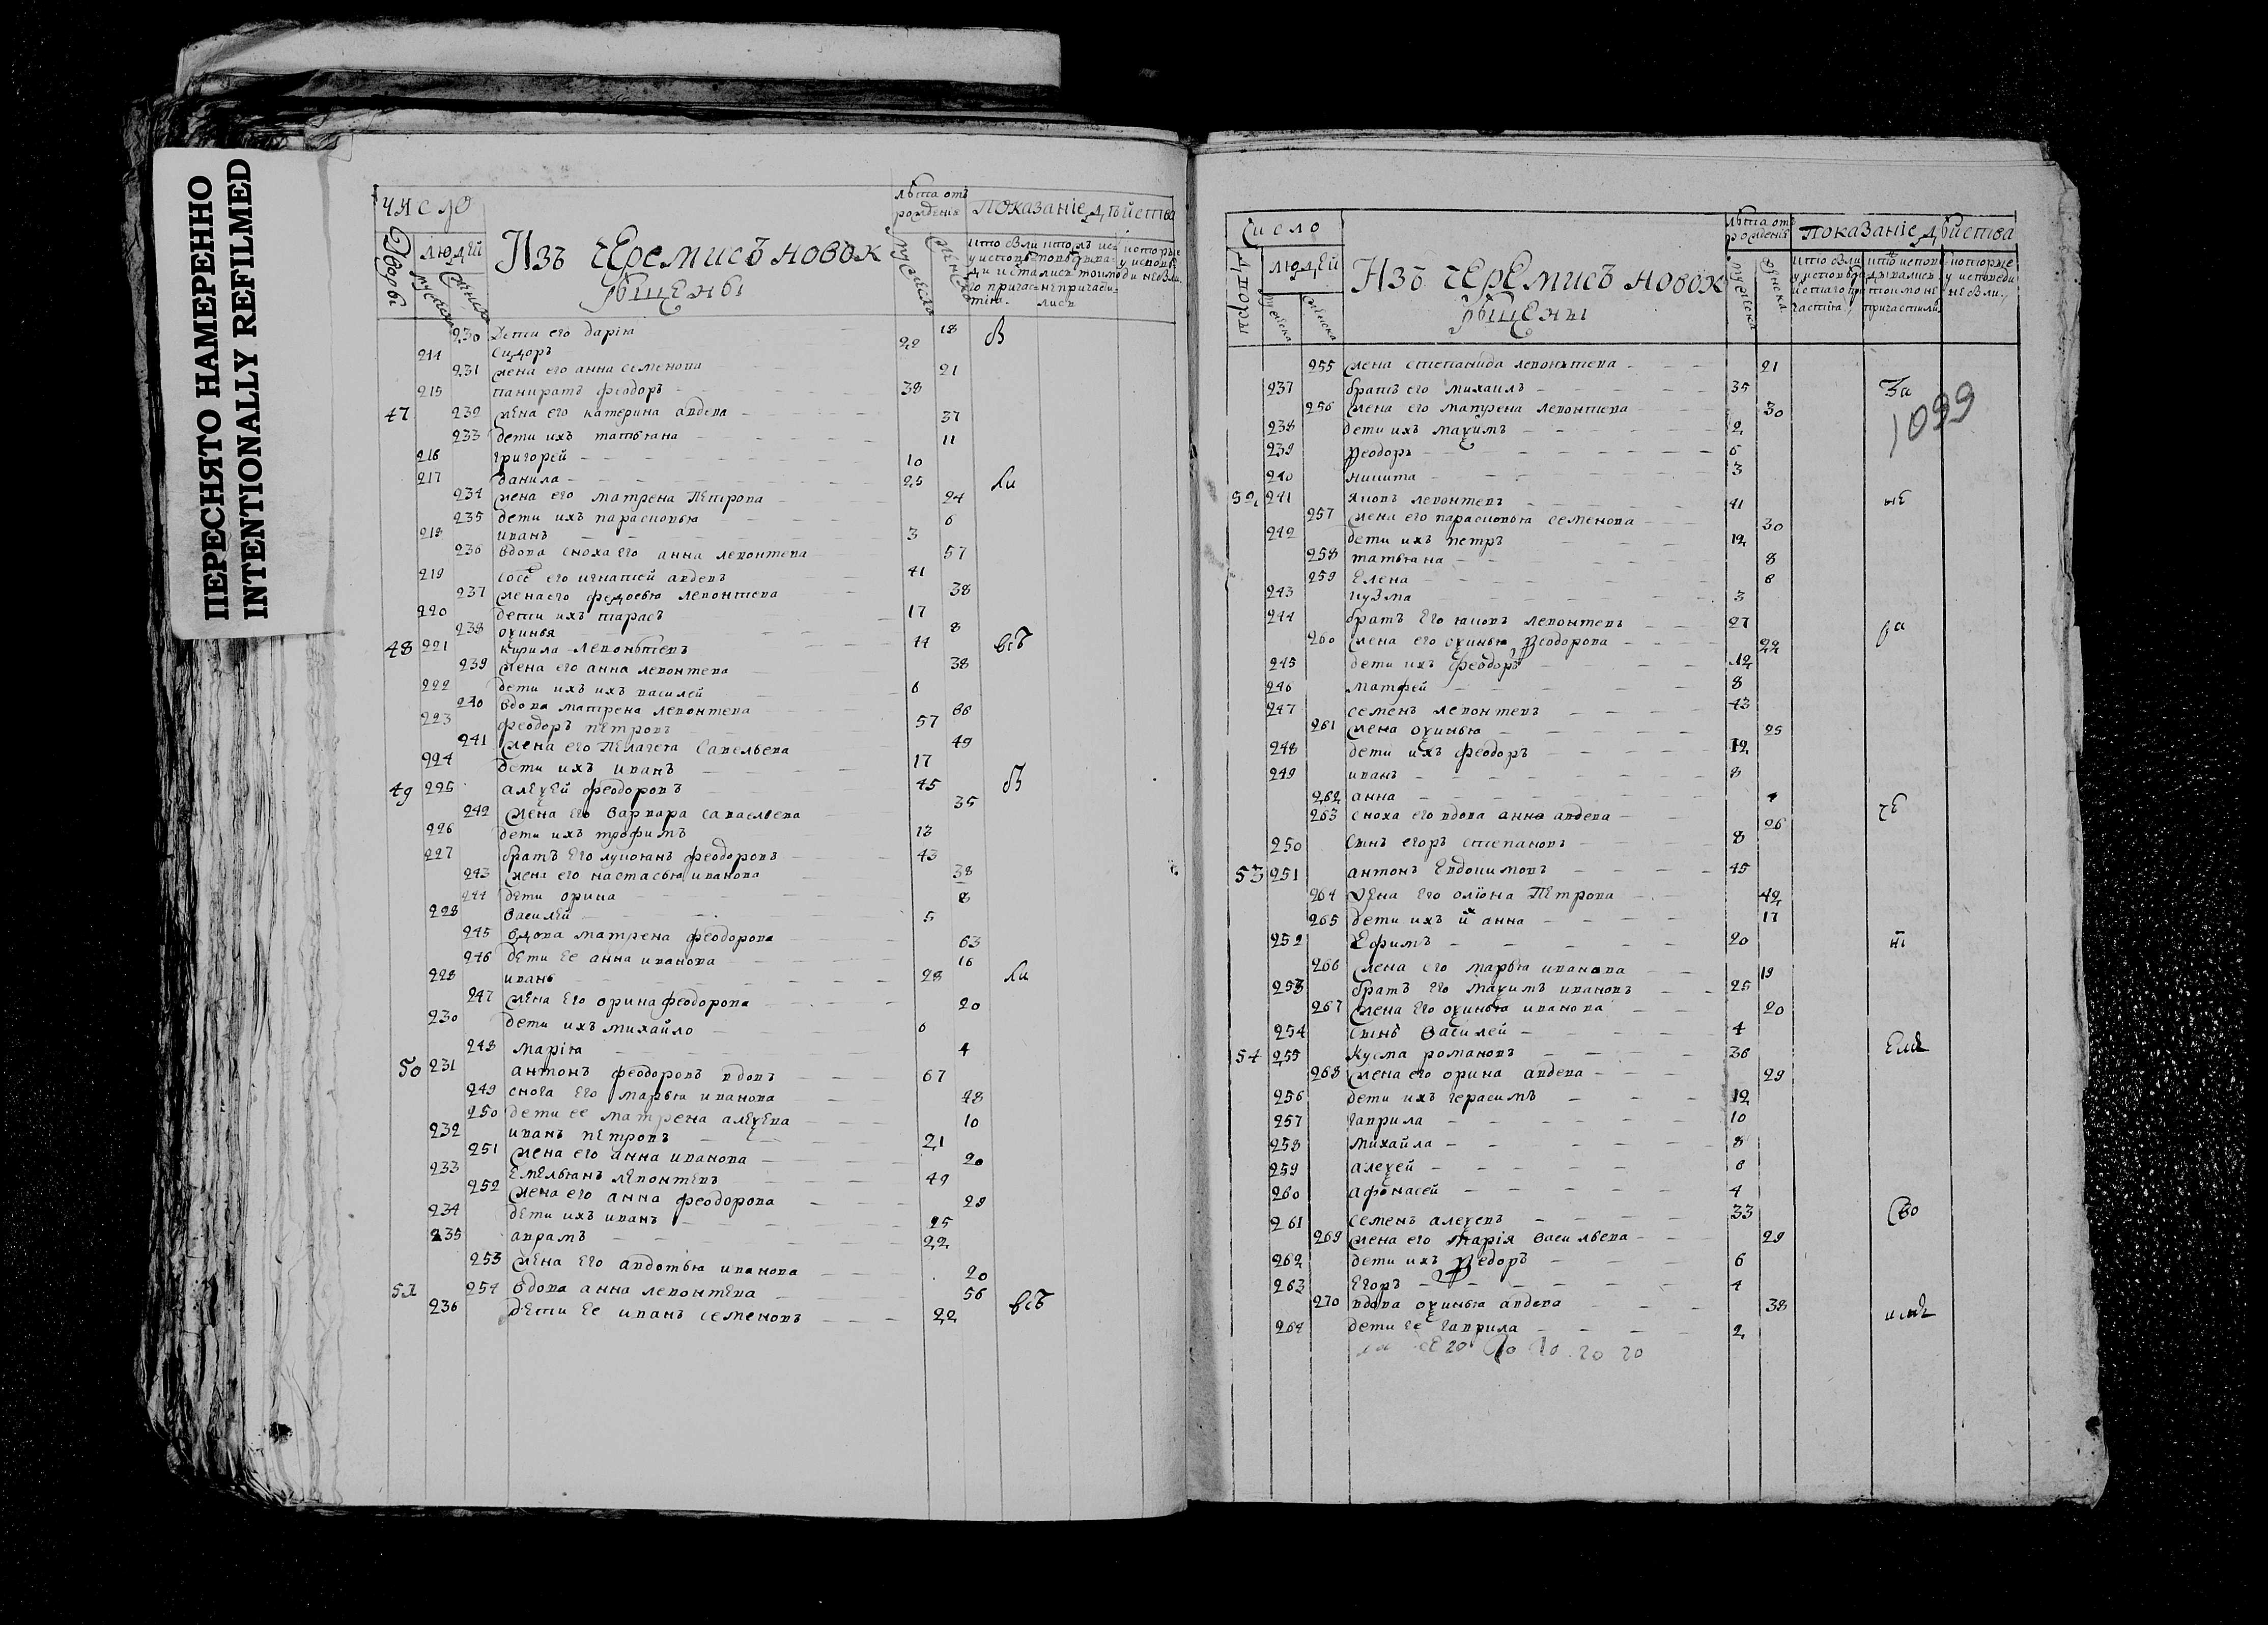 ПЕРЕСНЯТО НАМЕРЕННО
INTENTIONALLY REFILMED
число
Дворы
людей
мужеска
женска
Изъ черемисъ новок
рѣщены
лѣта отъ
рожденiя
мужеска
женска
показанiе дѣйства
230 Дети его дарiя 18
214 сидоръ 22
231 жена его анна семенова 21
215 панкратъ феодоръ 38
47 232 жена его катерина авдева 37
233 дети ихъ татьяна 11
216 григорей 10
217 данила 25
234 жена его матрена петрова 24
235 дети ихъ парасковья 6
218 иванъ 3
236 вдова сноха его анна левонтева 57
219 сосе его игнатей авдевъ 41
237 жена его федосья левонтева 38
220 дети ихъ тарасъ 17
238 оѯинья 8
48 221 кирила левонтевъ 44 всѣ
239 жена его анна левонтева 38
222 дети ихъ ихъ василей 6
240 вдова матрена левонтева 66
223 феодоръ петровъ 57
241 жена его пелагея савельева 49
224 дети ихъ иванъ 17
49 225 алеѯей феодоровъ 45
242 жена его варвара саваельева 35
226 дети ихъ трофимъ 13
227 братъ его лукоянъ феодоровъ 43
243 жена его настасья иванова 38
244 дети орина 8
228 василей 5
245 вдова матрена феодорова 63
246 дети ее анна иванова 16
228 иванъ 28
247 жена его орина феодорова 20
230 дети ихъ михайло 6
248 марiя 4
50 231 антонъ феодоровъ вдовъ 67
249 сноха его марья иванова 48
250 дети ее матрена алеѯева 10
232 иванъ петровъ 21
251 жена его анна иванова 20
233 емельянъ левонтевъ 49
252 жена его анна феодорова 29
234 дети ихъ иванъ 25
235 аврамъ 22
253 жена его авдотья иванова 20
51 254 вдова анна левонтева 56
236 дети ее иванъ семеновъ 22 всѣ
число
людей
мужеска
женска
Изъ черемисъ новок
рѣщены
лѣта отъ
рожденiя
мужеска
женска
показанiе дѣйства
1099
255 жена степанида левонтева 21
237 братъ его михаилъ 35 За
256 жена его матрена левонтева 30
238 дети ихъ маѯимъ 2
239 феодоръ 6
240 никита 3
52 241 яковъ левонтевъ 41 не
257 жена его парасковья семенова 30
242 дети ихъ петръ 12
258 татьяна 8
259 елена 6
243 кузма 3
244 братъ его яковъ левонтевъ 27 ра
260 жена его оѯинья феодорова 22
245 дети ихъ феодоръ 12
246 матфей 8
247 семенъ левонтевъ 43
261 жена оѯинья 25
248 дети ихъ феодоръ 12
249 иванъ 8
262 анна 4 че
263 сноха его вдова анна авдева 26
250 сынъ егоръ степановъ 8
53 251 антонъ евдокимовъ 45
264 жена его олiона петрова 42
265 дети ихъ анна 17
252 ефимъ 20 нi
266 жена его марья иванова 19
253 братъ его маѯимъ ивановъ 25
267 жена его оѯинья иванова 20
254 сынъ василей 4
54 255 кусма романовъ 36
268 жена его орина авдева 29
256 дети ихъ герасимъ 12
257 гаврила 10
258 михайла 8
259 алеѯей 6
260 афонасей 4
261 семенъ алеѯевъ 33 Сво
269 жена его марiя васильева 29
262 дети ихъ федоръ 6
263 егоръ 4
270 вдова оѯинья авдева 38
264 дети ее гаврила 2